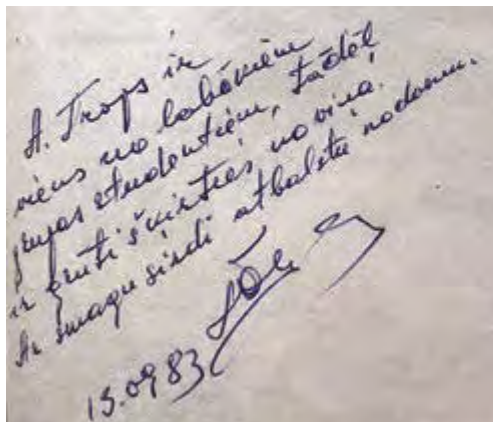 A. Trops ir
viens no labākiem
grupas studentiem, tādēļ
ir grūti šķirties no viņa.
Ar smagu sirdi atbalstu nodomu.
15.09.83